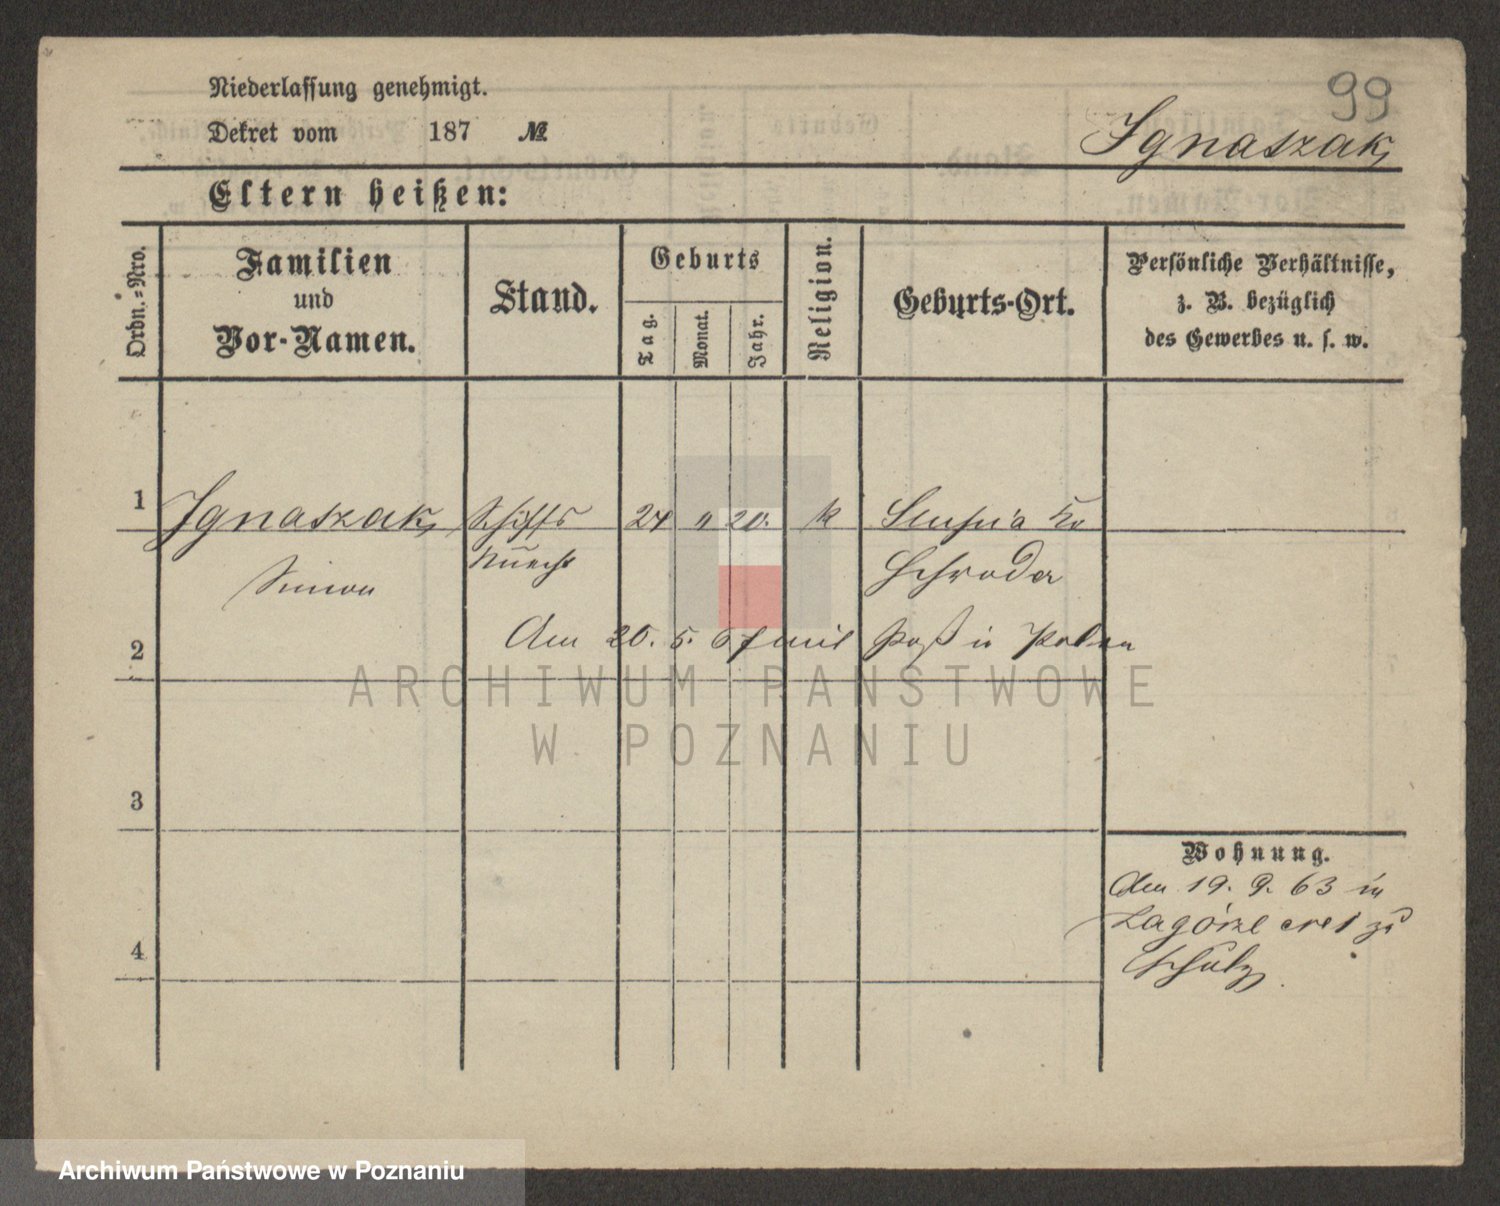 99
Niederlassung genehmigt.
Dekret vom 187 №
Ignaszak
Eltern heißen:
Ordn.=Nro.
Familien
und
Vor-Namen.
Stand.
Geburts
Tag.
Monat.
Jahr.
Religion.
Geburts-Ort.
Persönliche Verhältnisse,
z. B. bezüglich
des Gewerbes u. s. w.
1 Ignaszak Schiffs 24 " 20. k Kr
Simon Knecht Schroda
2 Am 20. 5. 67 mit Paß in Polen
3
Wohnung.
Am 19. 9. 63 in
Zagórze zu
4 Schulz
ARCHIWUM PAŃSTWOWE
W POZNANIU
Archiwum Państwowe w Poznaniu